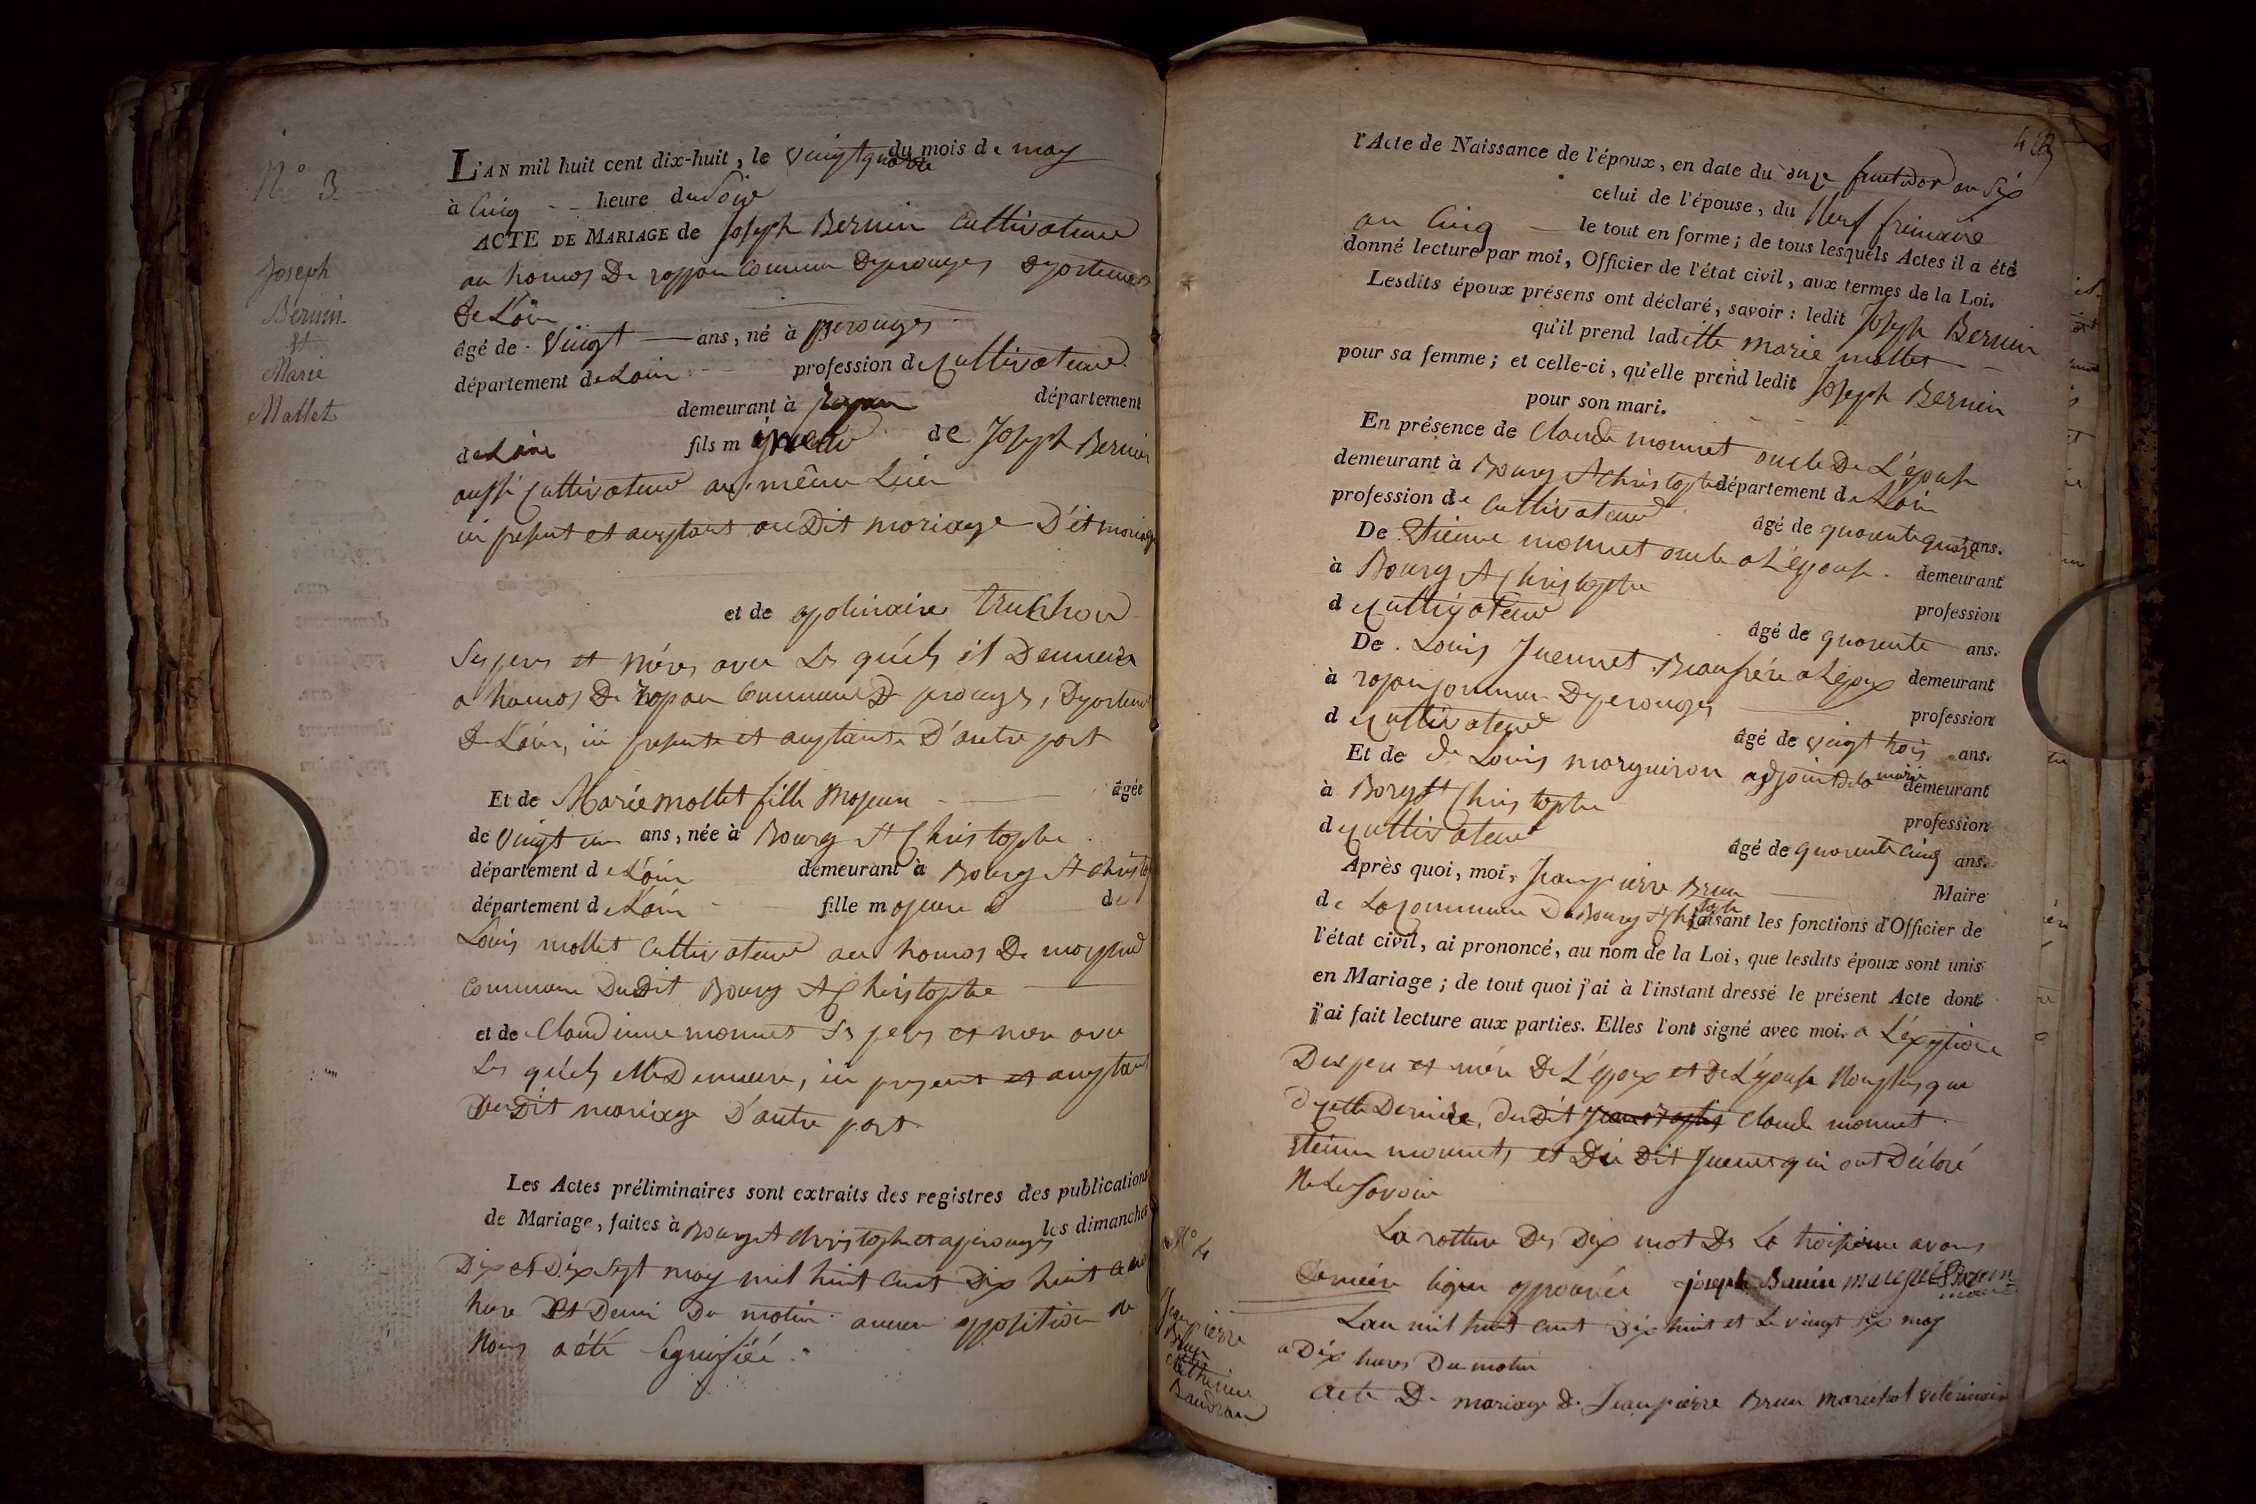 N° 3
Joseph
Bernin
et
Marie
Mollet
L'AN mil huit cent dix-huit, le vingt quatre du mois de may
à Cinq heure du Soir
ACTE DE MARIAGE de Joseph Bernin Cultivateur
au hamos De rappan Commune Deperouges Departement
de L'ain
âgé de Vingt ans, né à perouges
département de L'ain profession de Cultivateur
demeurant à département
de L'ain fils mineur de Joseph Bernin
aussi Cultivateur au même Lieu
ici présent et acceptant au Dit mariage D'
et de apolinaire truchon
Ses pere et Mére, avec Les quéls il Demeure
a hamos De rapan Commune De perouges, Departement
De L'ain, ici presente et acceptante D'autre part
Et de Marie mollet fille Majeure âgée
de Vingt un ans, née à Bourg St Christophe
département de L'ain demeurant à Bourg St Christophe
département de L'ain fille majeure de
Louis mollet Cultivateur au hamos De
commune DuDit Bourg St Christophe
et de Claudinne monnet Ses pere et mere avec
Les quéls elle Demeure, ici present et acceptant
auDit mariage D'autre part
Les Actes préliminaires sont extraits des registres des publications
de Mariage, faites à Bourg St Christophe et a perouges les dimanches
Dix et Dix Sept may mil huit Cent Dix huit a
hure Et Demi Du matin aucune opposition ne
Nous a été Signifiée.
l'Acte de Naissance de l'époux, en date du onze fructidor an Six
celui de l'épouse, du Neuf frimaire
an Cinq le tout en forme; de tous lesquels Actes il a été
donné lecture par moi, Officier de l'état civil, aux termes de la Loi.
Lesdits époux présens ont déclaré, savoir: ledit Joseph Bernin
qu'il prend ladite Marie mollet
pour sa femme; et celle-ci, qu'elle prend ledit Joseph Bernin
pour son mari.
En présence de Claude monnet oncle De L'épouse
demeurant à Bourg St Christophe département de L'ain
profession de Cultivateur âgé de quarente quatre ans.
De Etienne monnet oncle a L'épouse demeurant
à Bourg St Christophe profession
de Cultivateur âgé de quarente ans.
De Louis Juennet Beaufrére a L'époux demeurant
à rapan Commune De perouges profession
de Cultivateur âgé de vingt trois ans.
Et de de Louis marguiron adjoint De la mairie demeurant
à Borg St Christophe profession
de Cultivateur âgé de quarente Cinq ans.
Après quoi, moi, Jean pierre Brun Maire
de La Commune De Bourg St Christophe faisant les fonctions d'Officier de
l'état civil, ai prononcé, au nom de la Loi, que lesdits époux sont unis
en Mariage; de tout quoi j'ai à l'instant dressé le présent Acte dont
j'ai fait lecture aux parties. Elles l'ont signé avec moi. a L'exeption
Des pere et mére De L'époux et De L'épouse Non plus que
de Cette Derniére, du Dit Claude monnet
etienne monnet, et Du Dit Juennet qui ont Déclaré
Ne Le Savoir
La rotture Des Dix mot De La troisieme avant
Derniére ligne approuvée joseph Bernin
N° 4
Jean pierre
Brun
et
Catherine
Baudran
L'an mil huit cent Dix huit et Le vingt six may
a Dix hures Du matin
Acte De mariage de Jean pierre Brun Maréchal vétérinaire